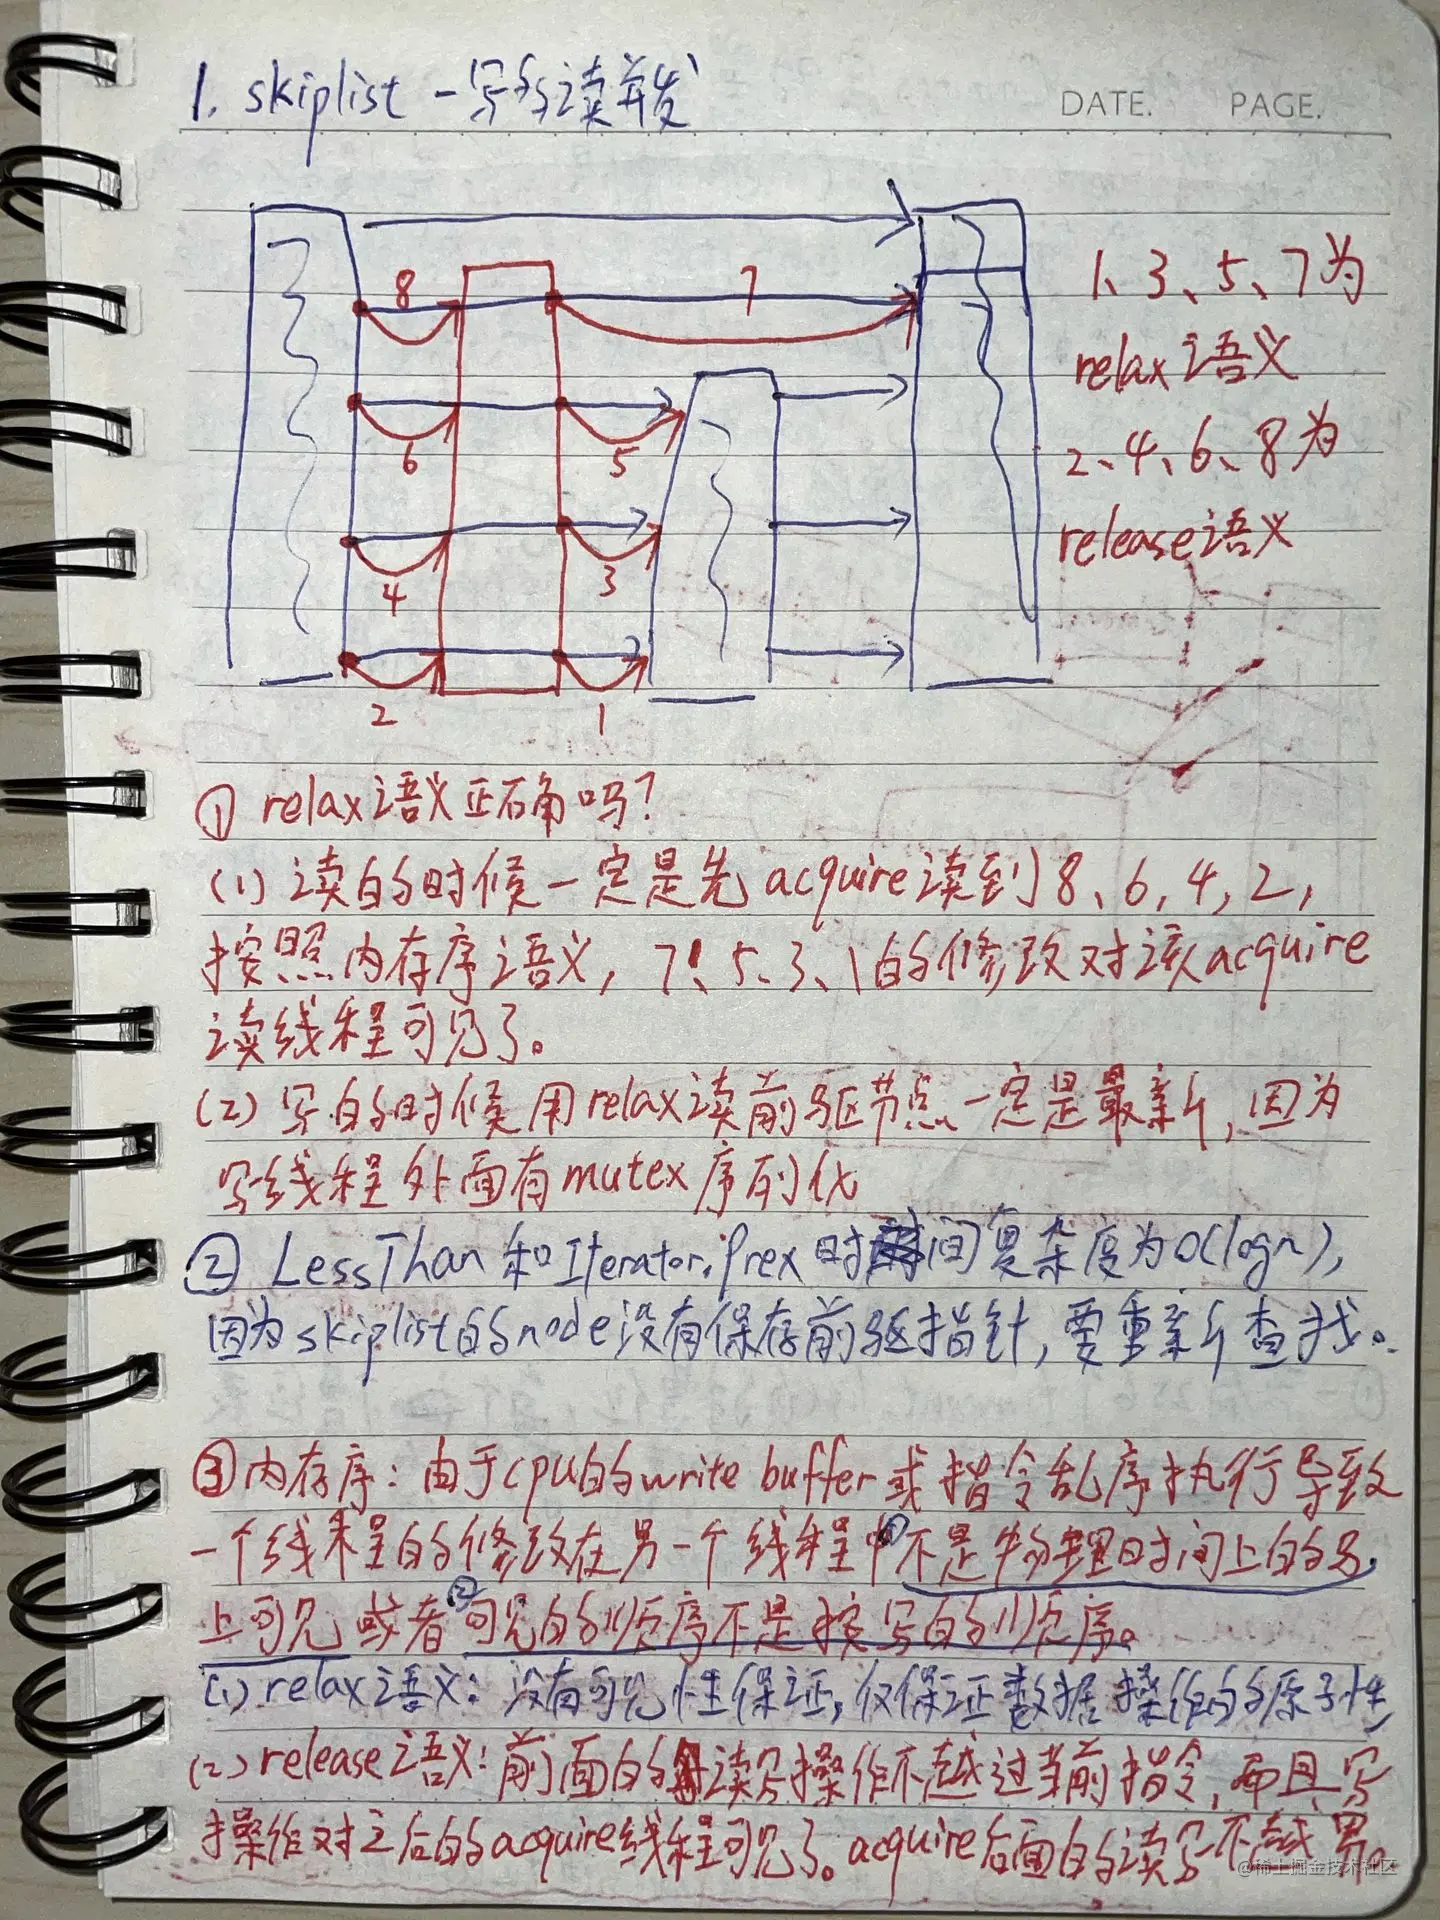 1. skiplist 一写多读并发
DATE. PAGE.
8 7
6 5
4 3
2 1
1、3、5、7为
relax语义
2、4、6、8为
release语义
① relax语义正确吗?
(1) 读的时候一定是先acquire读到8、6,4,2,
按照内存序语义, 7、5、3、1的修改对该acquire
读线程可见了。
(2) 写的时候用relax读前驱节点一定是最新, 因为
写线程外面有mutex序列化
② LessThan和Iterator.Prex时间复杂度为O(logn),
因为skiplist的node没有保存前驱指针,要重新查找。
③ 内存序: 由于cpu的write buffer或指令乱序执行导致
一个线程的修改在另一个线程中①不是物理时间上的马
上可见或者②可见的顺序不是按写的顺序。
(1) relax语义: 没有可见性保证, 仅保证数据操作的原子性
(2) release语义: 前面的读写操作不越过当前指令, 而且写
操作对之后的acquire线程可见了。acquire后面的读写不越界。
@稀土掘金技术社区